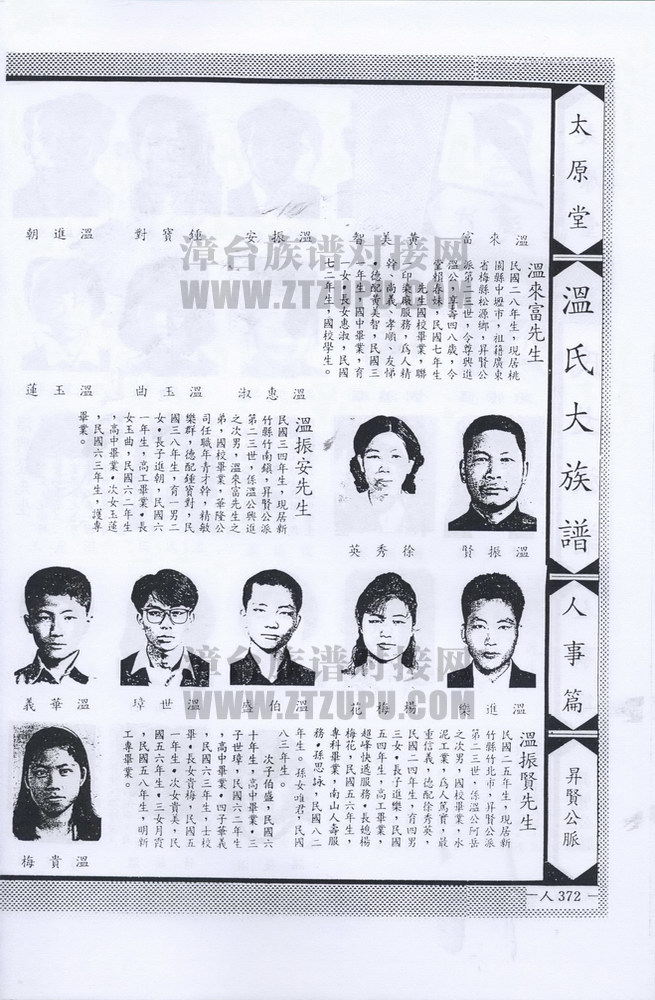 太原堂
溫氏大族譜
人事篇
昇賢公脈
人 372
溫來富
黃美智
溫振安
鍾寶對
溫進朝
溫來富先生
民國二八年生，現居桃
園縣中壢市，祖籍廣東
省梅縣松源鄉，昇賢公
派第二三世，令尊興進
溫公，享壽四八歲，令
堂賴春妹，民國七年生
。先生國校畢業，聯
印染廠服務，為人精
幹、尚義、孝順、友悌
。德配黃美智，民國三
一年生，國中畢業，育
一女。長女惠淑，民國
七二年生，國校學生。
溫惠淑
溫玉曲
溫玉蓮
溫振賢
徐秀英
溫振安先生
民國三四年生，現居新
竹縣竹南鎮，昇賢公派
第二三世，係溫公興進
之次男，溫來富先生之
弟，國校畢業，華隆公
司任職年青才幹，精敏
樂群，德配鍾寶對，民
國三八年生，育一男二
女。長子進朝，民國六
一年生，高工畢業。長
女玉曲，民國六二年生
，高中畢業。次女玉蓮
，民國六三年生，護專
畢業。
溫進樂
楊梅花
溫伯盛
溫世璋
溫華義
溫振賢先生
民國二五年生，現居新
竹縣竹北市，昇賢公派
第二三世，係溫公阿岳
之次男，國校畢業，水
泥工業，為人篤實，最
重信義，德配徐秀英，
民國二四年生，育四男
三女。長子進樂，民國
五四年生，高工畢業，
超峰快遞服務。長媳楊
梅花，民國五六年生，
專科畢業，南山人壽服
務。孫思詠，民國八二
年生。孫女唯君，民國
八三年生。
次子伯盛，民國六
十年生，高中畢業。三
子世璋，民國六二年生
，高中畢業。四子華義
，民國六三年生，士校
畢。長女貴梅，民國五
一年生。次女貴美，民
國五六年生。三女月霞
，民國五八年生，明新
工專畢業。
溫貴梅
漳台族谱对接网
WWW.ZTZUPU.COM
漳台族谱对接网
WWW.ZTZUPU.COM